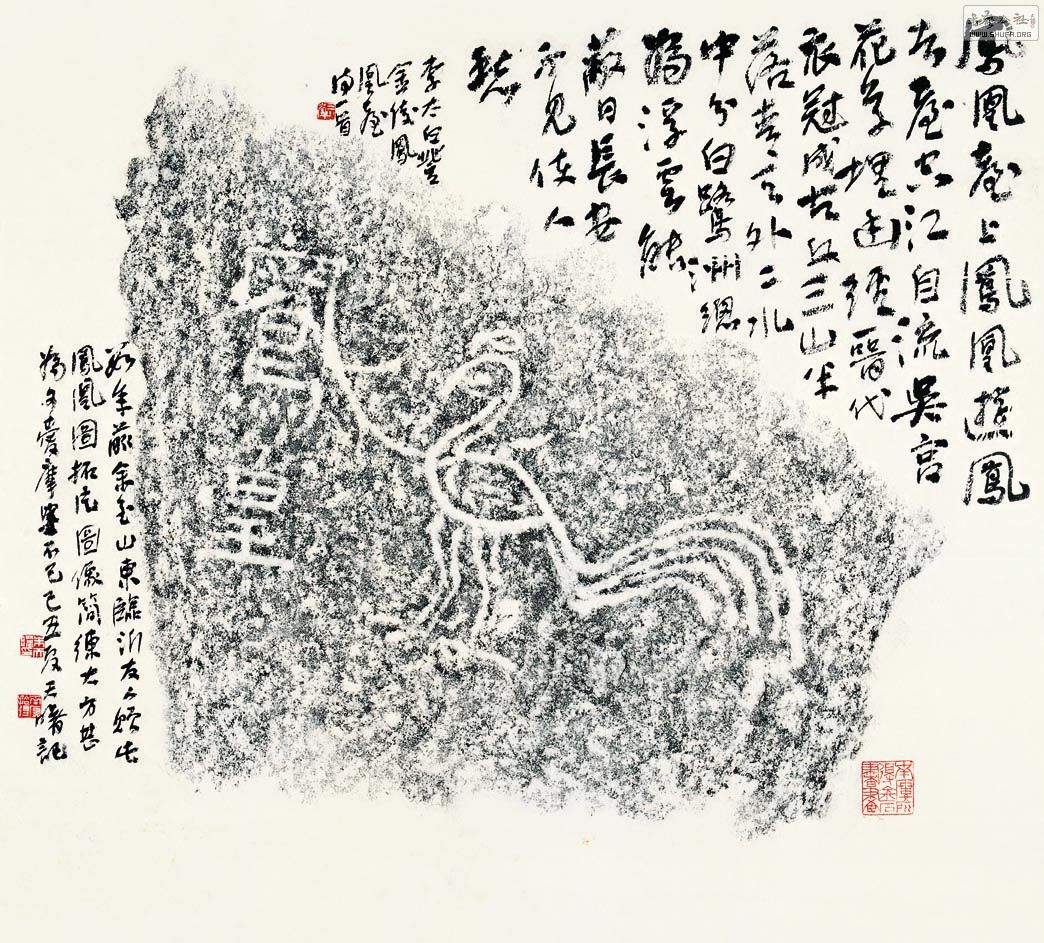 鳳凰臺上鳳凰遊鳳
去臺空江自流吳宮
花草埋幽徑晉代
衣冠成古丘三山半
落青天外二水
中分白鷺洲總
為浮雲能
蔽日長安
不見使人
愁
李太白登
金陵鳳
凰臺
詩一首
皇
數年前余至山東臨沂友人贈此
鳳凰圖拓片圖像簡練大方甚
為可愛摩挲不已己丑夏曙記
公社
WWW.SHUFA.ORG